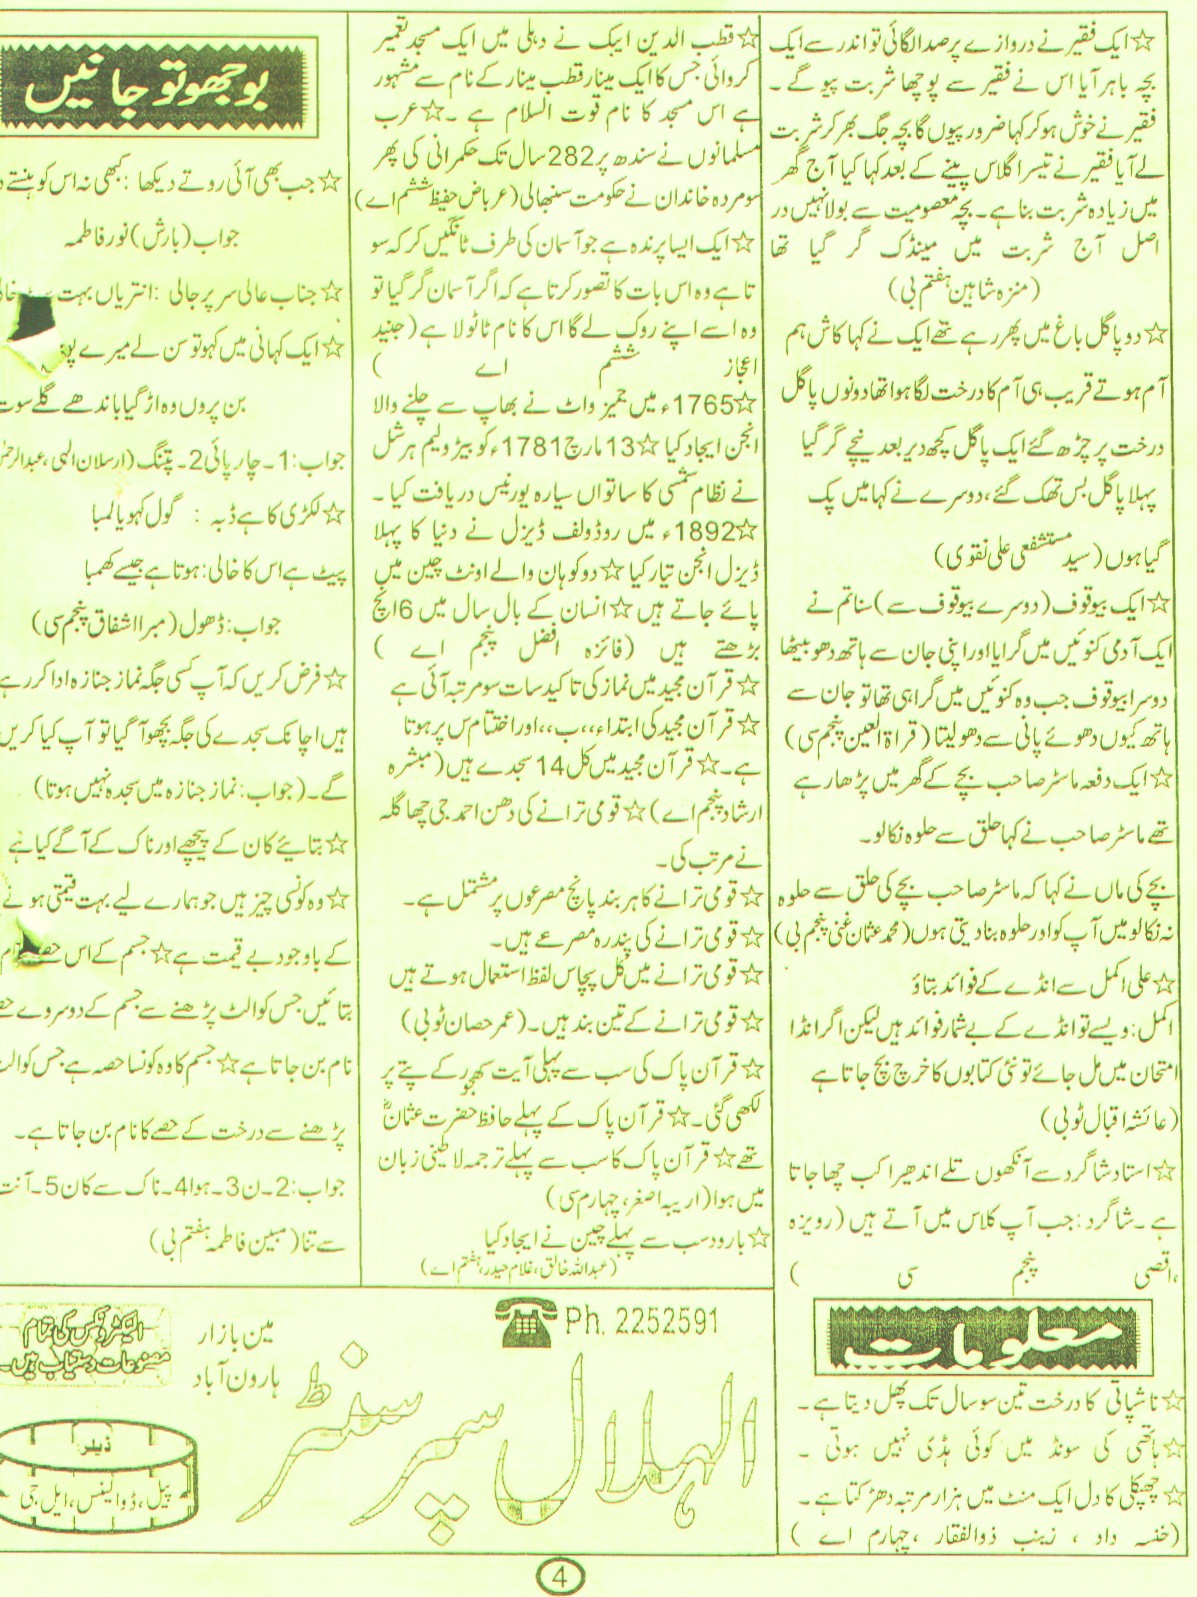 ☆ ایک فقیر نے دروازے پر صدا لگائی تو اندر سے ایک
بچہ باہر آیا اس نے فقیر سے پوچھا شربت پیو گے ۔
فقیر نے خوش ہو کر کہا ضرور پیوں گا بچہ جگ بھر کر شربت
لے آیا فقیر نے تیسرا گلاس پینے کے بعد کہا کیا آج گھر
میں زیادہ شربت بنا ہے ۔ بچہ معصومیت سے بولا نہیں در
اصل آج شربت میں مینڈک گر گیا تھا
(منزہ شاہین ہفتم بی)
☆ دو پاگل باغ میں پھر رہے تھے ایک نے کہا کاش ہم
آم ہوتے قریب ہی آم کا درخت لگا ہوا تھا دونوں پاگل
درخت پر چڑھ گئے ایک پاگل کچھ دیر بعد نیچے گر گیا
پہلا پاگل بس تھک گئے، دوسرے نے کہا میں پک
گیا ہوں (سید مستشفعی علی نقوی)
☆ ایک بیوقوف (دوسرے بیوقوف سے) سنا تم نے
ایک آدمی کنوئیں میں گرایا اور اپنی جان سے ہاتھ دھو بیٹھا
دوسرا بیوقوف جب وہ کنوئیں میں گرا ہی تھا تو جان سے
ہاتھ کیوں دھوئے پانی سے دھو لیتا (قراۃ العین پنجم سی)
☆ ایک دفعہ ماسٹر صاحب بچے کے گھر میں پڑھا رہے
تھے ماسٹر صاحب نے کہا حلق سے حلوہ نکالو۔
بچے کی ماں نے کہا کہ ماسٹر صاحب بچے کی حلق سے حلوہ
نہ نکالو میں آپ کو اور حلوہ بنا دیتی ہوں (محمد عثمان غنی پنجم بی)
☆ علی اکمل سے انڈے کے فوائد بتاؤ
اکمل: ویسے تو انڈے کے بے شمار فوائد ہیں لیکن اگر انڈا
امتحان میں مل جائے تو نئی کتابوں کا خرچ بچ جاتا ہے
(عائشہ اقبال ٹو بی)
☆ استاد شاگرد سے آنکھوں تلے اندھیرا کب چھا جاتا
ہے ۔ شاگرد: جب آپ کلاس میں آتے ہیں (رویزہ
،اقصی پنجم سی)
معلومات
☆ ناشپاتی کا درخت تین سو سال تک پھل دیتا ہے ۔
☆ ہاتھی کی سونڈ میں کوئی ہڈی نہیں ہوتی ۔
☆ چھپکلی کا دل ایک منٹ میں ہزار مرتبہ دھڑکتا ہے ۔
(خنسہ داد ، زینب ذوالفقار ، چہارم اے)
☆ قطب الدین ایبک نے دہلی میں ایک مسجد تعمیر
کروائی جس کا ایک مینار قطب مینار کے نام سے مشہور
ہے اس مسجد کا نام قوت السلام ہے ۔ ☆ عرب
مسلمانوں نے سندھ پر 282 سال تک حکمرانی کی پھر
سومردہ خاندان نے حکومت سنبھالی (عرباض حفیظ ششم اے)
☆ ایک ایسا پرندہ ہے جو آسمان کی طرف ٹانگیں کر کہ سو
تا ہے وہ اس بات کا تصور کرتا ہے کہ اگر آسمان گر گیا تو
وہ اسے اپنے روک لے گا اس کا نام ٹاٹولا ہے (جنید
اعجاز ششم اے)
☆ 1765ء میں جیمز واٹ نے بھاپ سے چلنے والا
انجن ایجاد کیا ☆ 13 مارچ 1781ء کو بیڑ ولیم ہرشل
نے نظام شمسی کا ساتواں سیارہ یورنیس دریافت کیا ۔
☆ 1892ء میں روڈولف ڈیزل نے دنیا کا پہلا
ڈیزل انجن تیار کیا ☆ دو کوہان والے اونٹ چین میں
پائے جاتے ہیں ☆ انسان کے بال سال میں 6 انچ
بڑھتے ہیں (فائزہ افضل پنجم اے)
☆ قرآن مجید میں نماز کی تاکید سات سو مرتبہ آئی ہے
☆ قرآن مجید کی ابتداء ،،،ب،، اور اختتام س پر ہوتا
ہے ۔ ☆ قرآن مجید میں کل 14 سجدے ہیں (مبشرہ
ارشاد پنجم اے) ☆ قومی ترانے کی دھن احمد جی چھاگلہ
نے مرتب کی ۔
☆ قومی ترانے کا ہر بند پانچ مصرعوں پر مشتمل ہے ۔
☆ قومی ترانے کی پندرہ مصرعے ہیں ۔
☆ قومی ترانے میں کل پچاس لفظ استعمال ہوتے ہیں
☆ قومی ترانے کے تین بند ہیں ۔ (عمر حصان ٹو بی)
☆ قرآن پاک کی سب سے پہلی آیت کھجور کے پتے پر
لکھی گئی ۔ ☆ قرآن پاک کے پہلے حافظ حضرت عثمانؓ
تھے ☆ قرآن پاک کا سب سے پہلے ترجمہ لاطینی زبان
میں ہوا (اریبہ اصغر، چہارم سی)
☆ بارود سب سے پہلے چین نے ایجاد کیا
(عبداللہ خالق، غلام حیدر، ہفتم اے)
بوجھو تو جانیں
☆ جب بھی آئی روتے دیکھا : کبھی نہ اس کو ہنستے
جواب (بارش) نور فاطمہ
☆ جناب عالی سر پر جالی : انتڑیاں بہت
☆ ایک کہانی میں کہوں تو سن لے میرے
بن پروں وہ اڑ گیا باندھے گلے سوت
جواب: 1۔ چارپائی 2۔ پتنگ (ارسلان الہی،
☆ لکڑی کا ہے ڈبہ : گول کہو یا لمبا
پیٹ ہے اس کا خالی: ہوتا ہے جیسے کھمبا
جواب: ڈھول (مبرا اشفاق پنجم سی)
☆ فرض کریں کہ آپ کسی جگہ نماز جنازہ ادا کر رہے
ہیں اچانک سجدے کی جگہ بچھو آ گیا تو آپ کیا کریں
گے ۔ (جواب: نماز جنازہ میں سجدہ نہیں ہوتا)
☆ بتائیے کان کے پیچھے اور ناک کے آگے کیا ہے
☆ وہ کونسی چیز ہیں جو ہمارے لیے بہت قیمتی ہونے
کے باوجود بے قیمت ہے ☆ جسم کے اس
بتائیں جس کو الٹ پڑھنے سے جسم کے دوسروے
نام بن جاتا ہے ☆ جسم کا وہ کونسا حصہ ہے جس کو الٹ
پڑھنے سے درخت کے حصے کا نام بن جاتا ہے ۔
جواب: 2۔ ن 3۔ ہوا 4۔ ناک سے کان 5۔ آنت
سے تنا (مبین فاطمہ ہفتم بی)
Ph. 2252591
الہلال سپر سنٹر
مین بازار
ہارون آباد
الیکٹرونکس کی تمام
مصنوعات دستیاب ہیں۔
ڈیلر
پیل، ڈولینس، ایل جی
4